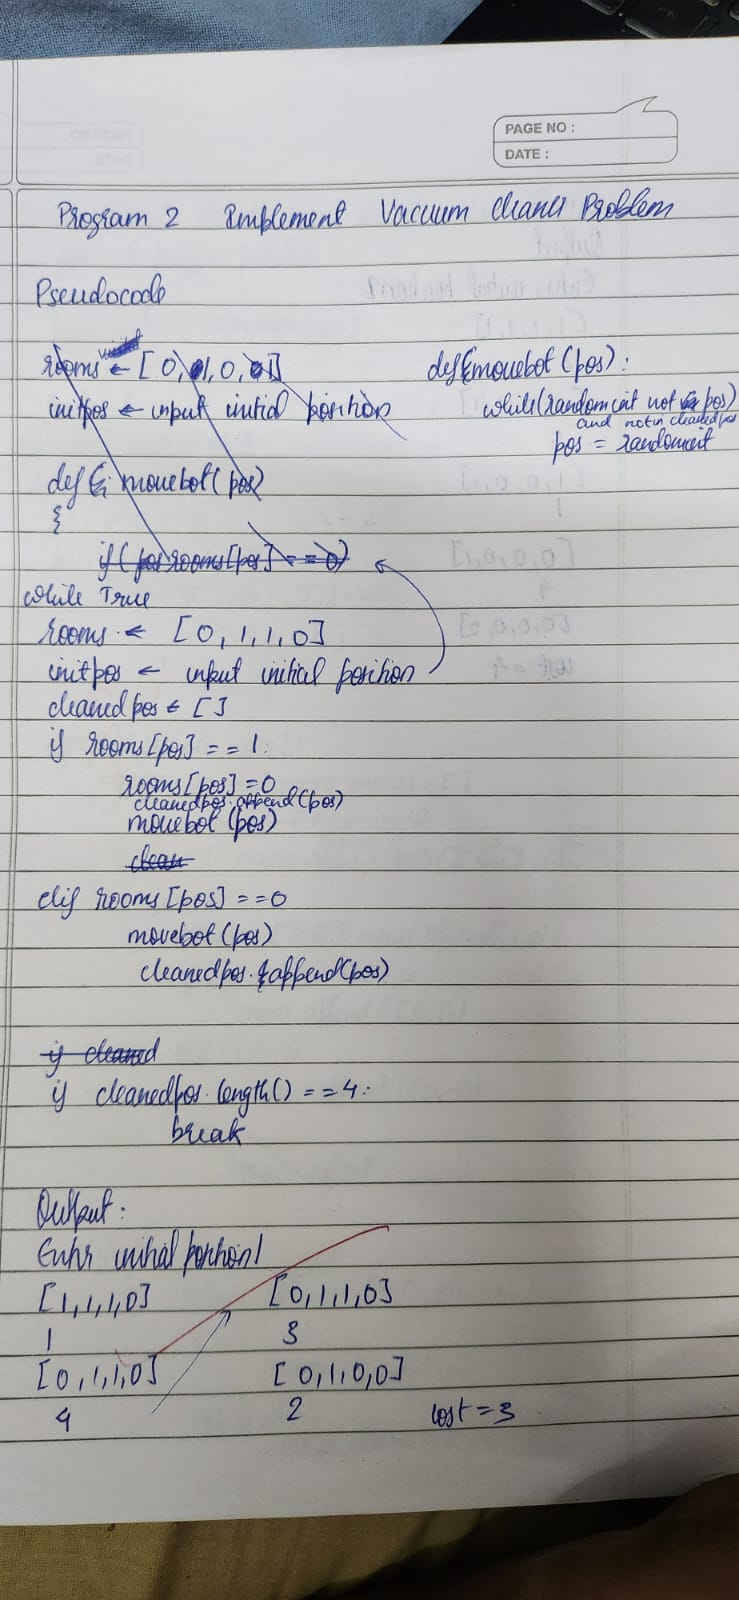 PAGE NO :
DATE :
Program 2 Implement Vacuum Cleaner Problem
Pseudocode
rooms ← [0, 1, 0, 1]
initpos ← input initial position
def movebot(pos)
{
if (rooms[pos] == 0)
def movebot(pos):
while(randomint not pos)
and not in cleanedpos
pos = randomint
while True
rooms ← [0, 1, 1, 0]
initpos ← input initial position
cleanedpos ← []
if rooms[pos] == 1:
rooms[pos] = 0
cleanedpos.append(pos)
movebot (pos)
clean
elif rooms[pos] == 0
movebot (pos)
cleanedpos.append(pos)
if cleaned
if cleanedpos.length() == 4:
break
Output:
Enter initial position 1
[1,1,1,0]
1
[0,1,1,0]
4
[0,1,1,0]
3
[0,1,0,0]
2
cost = 3